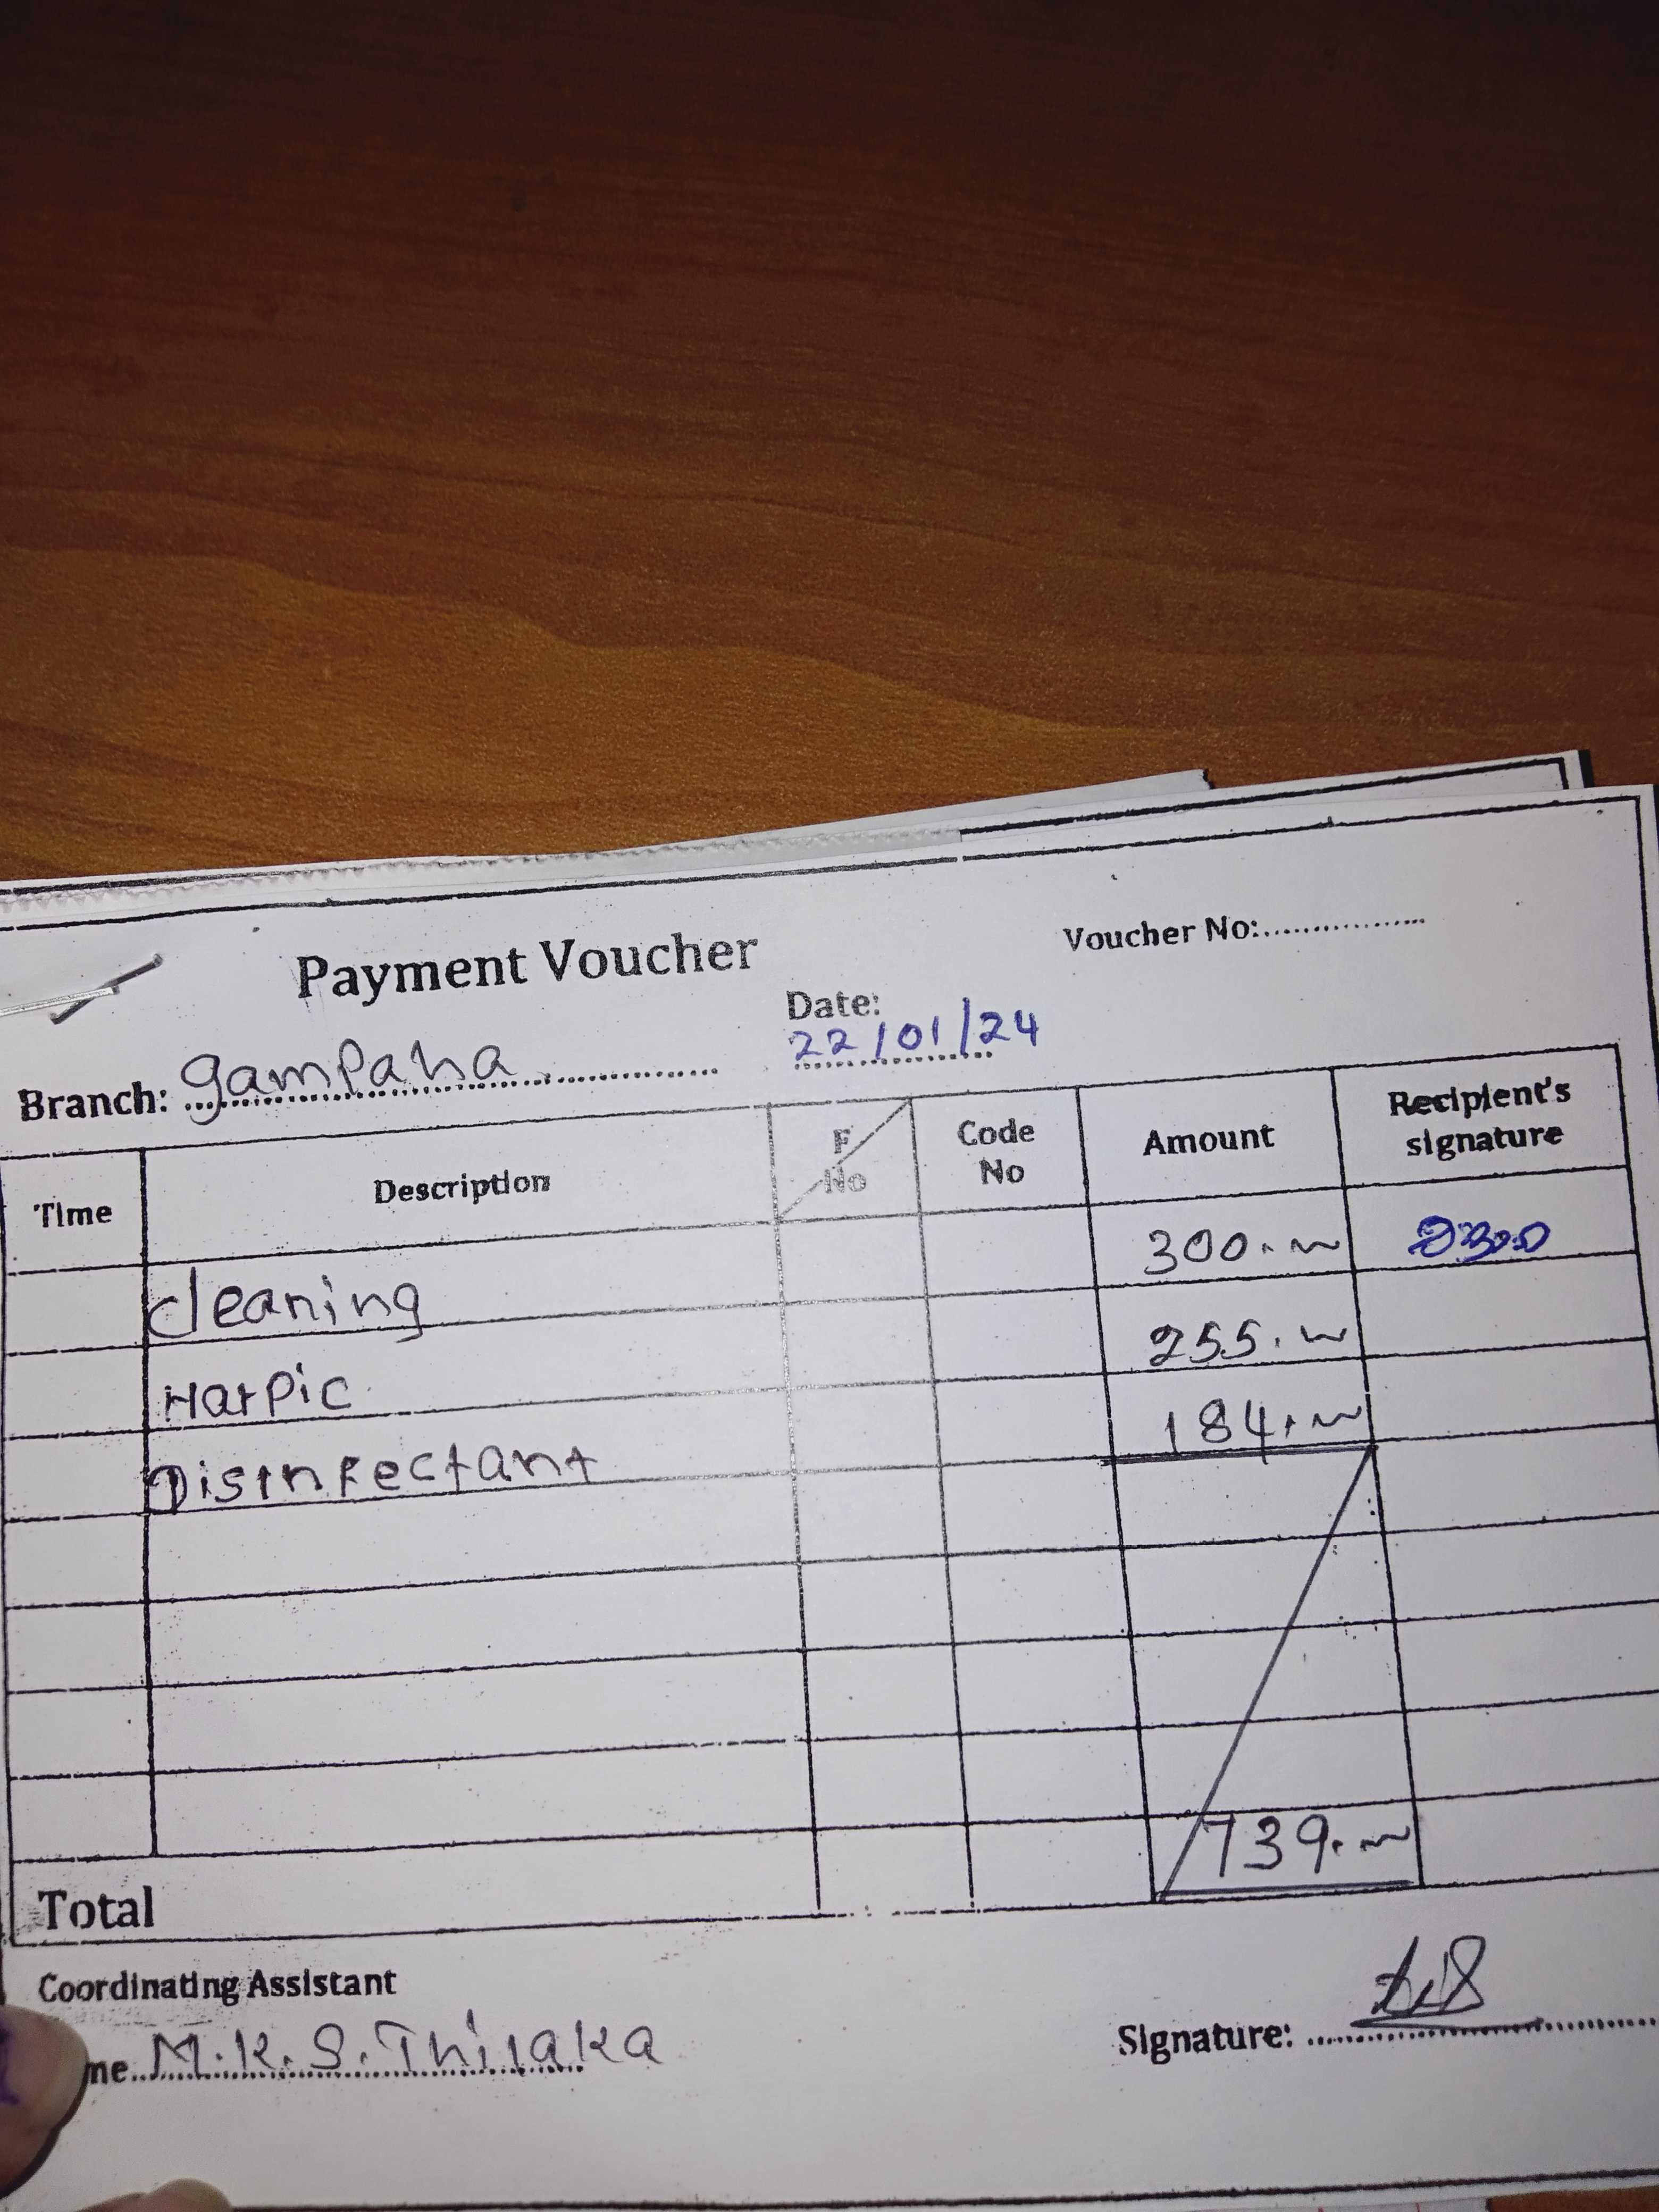 Payment Voucher
Voucher No:.................
Date:
22/01/24
Branch: gampaha
Time Description F No Code No Amount Recipient's signature
cleaning 300.
Harpic 255.
Disinfectant 184.
Total 739.
Coordinating Assistant
me M.K.S. Thilaka
Signature: